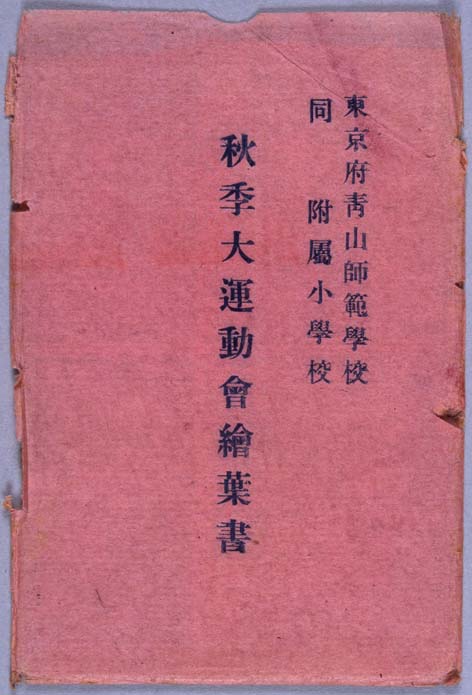 東京府靑山師範學校
同 附屬小學校
秋季大運動會繪葉書